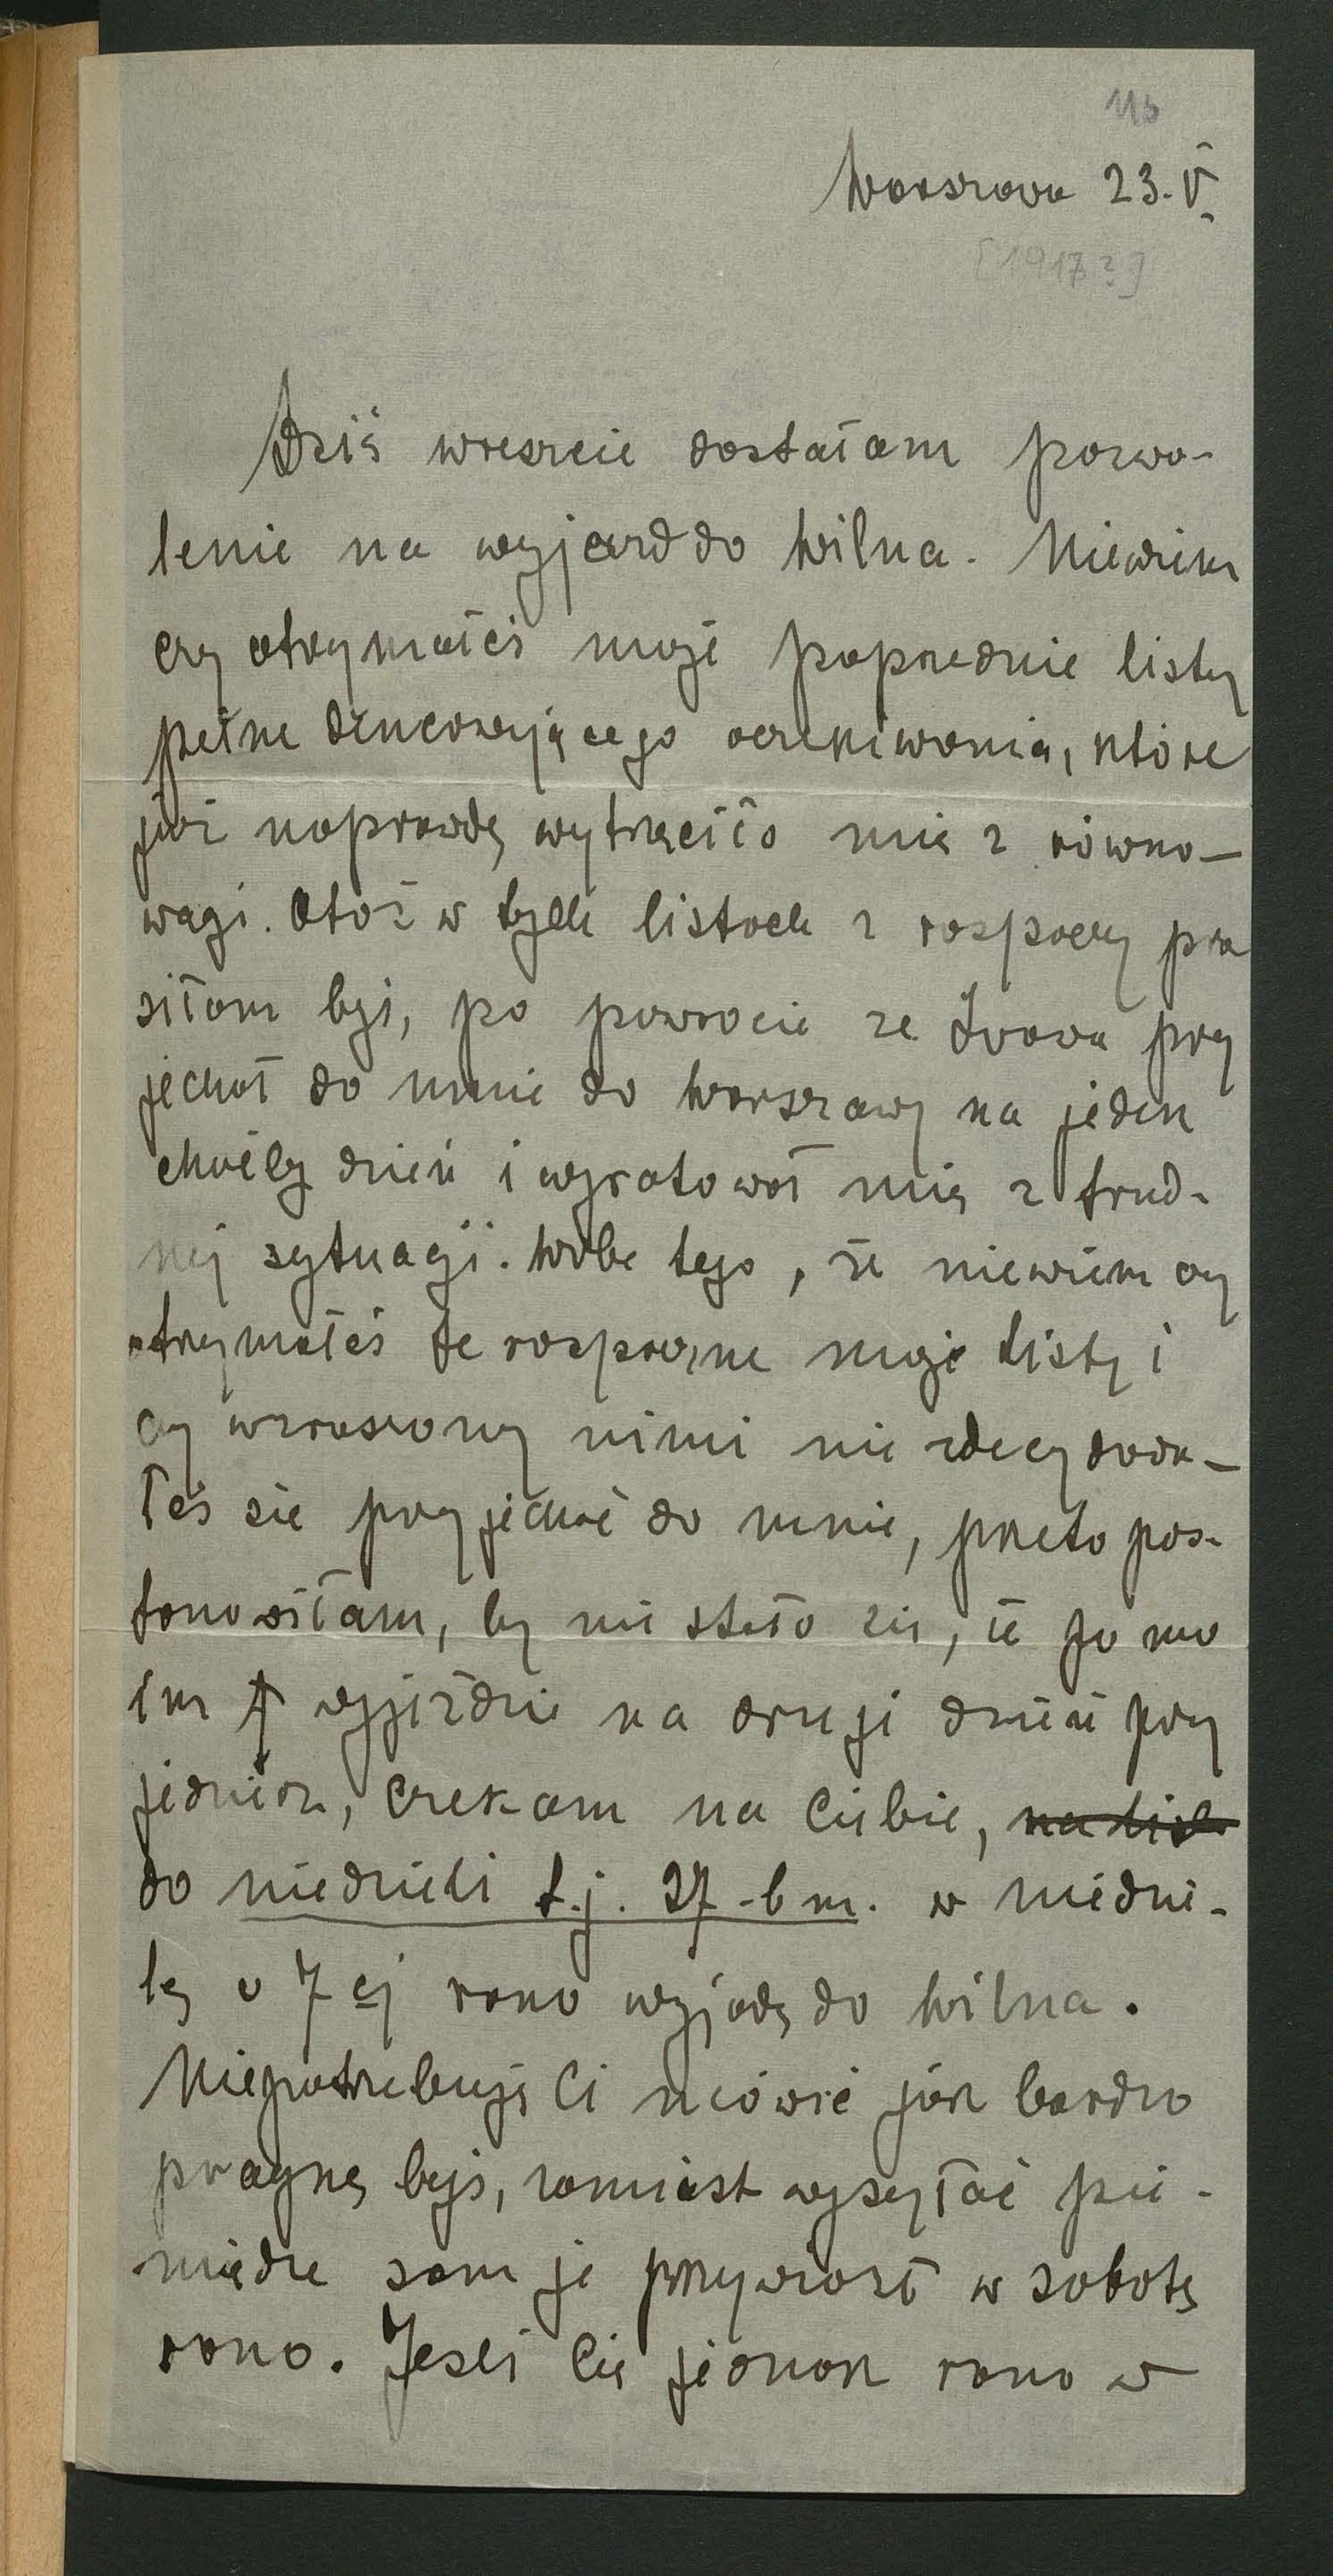 116
Warszawa 23. V.
[1917?]
Dziś wreszcie dostałam pozwo-
lenie na wyjazd do Wilna. Niewiem
czy otrzymałeś moje poprzednie listy
pełne denerwującego oczekiwania, które
już naprawdę wytrąciło mię z równo-
wagi. Otóż w tych listach z rozpaczy pro
siłam byś, po powrocie ze Lwowa przy
jechał do mnie do Warszawy na jeden
chociby dzień i wyratował mię z trud-
nej sytuacji. Wobec tego, że niewiem czy
otrzymałeś te rozpaczne moje listy i
czy wzruszony nimi nie zdecydowa-
łeś się przyjechać do mnie, przeto pos-
tanowiłam, by nie stało się, że po mo
im wyjeździe na drugi dzień przy
jedziesz, czekam na Ciebie,
do niedzieli t.j. 27 -b m. w niedzie-
lę o 7 ej rano wyjadę do Wilna.
Niepotrzebuję Ci mówić jak bardzo
pragnę byś, zamiast wysyłać pie-
niądze sam je przywiózł w sobotę
rano. Jeśli Cię jednak rano w